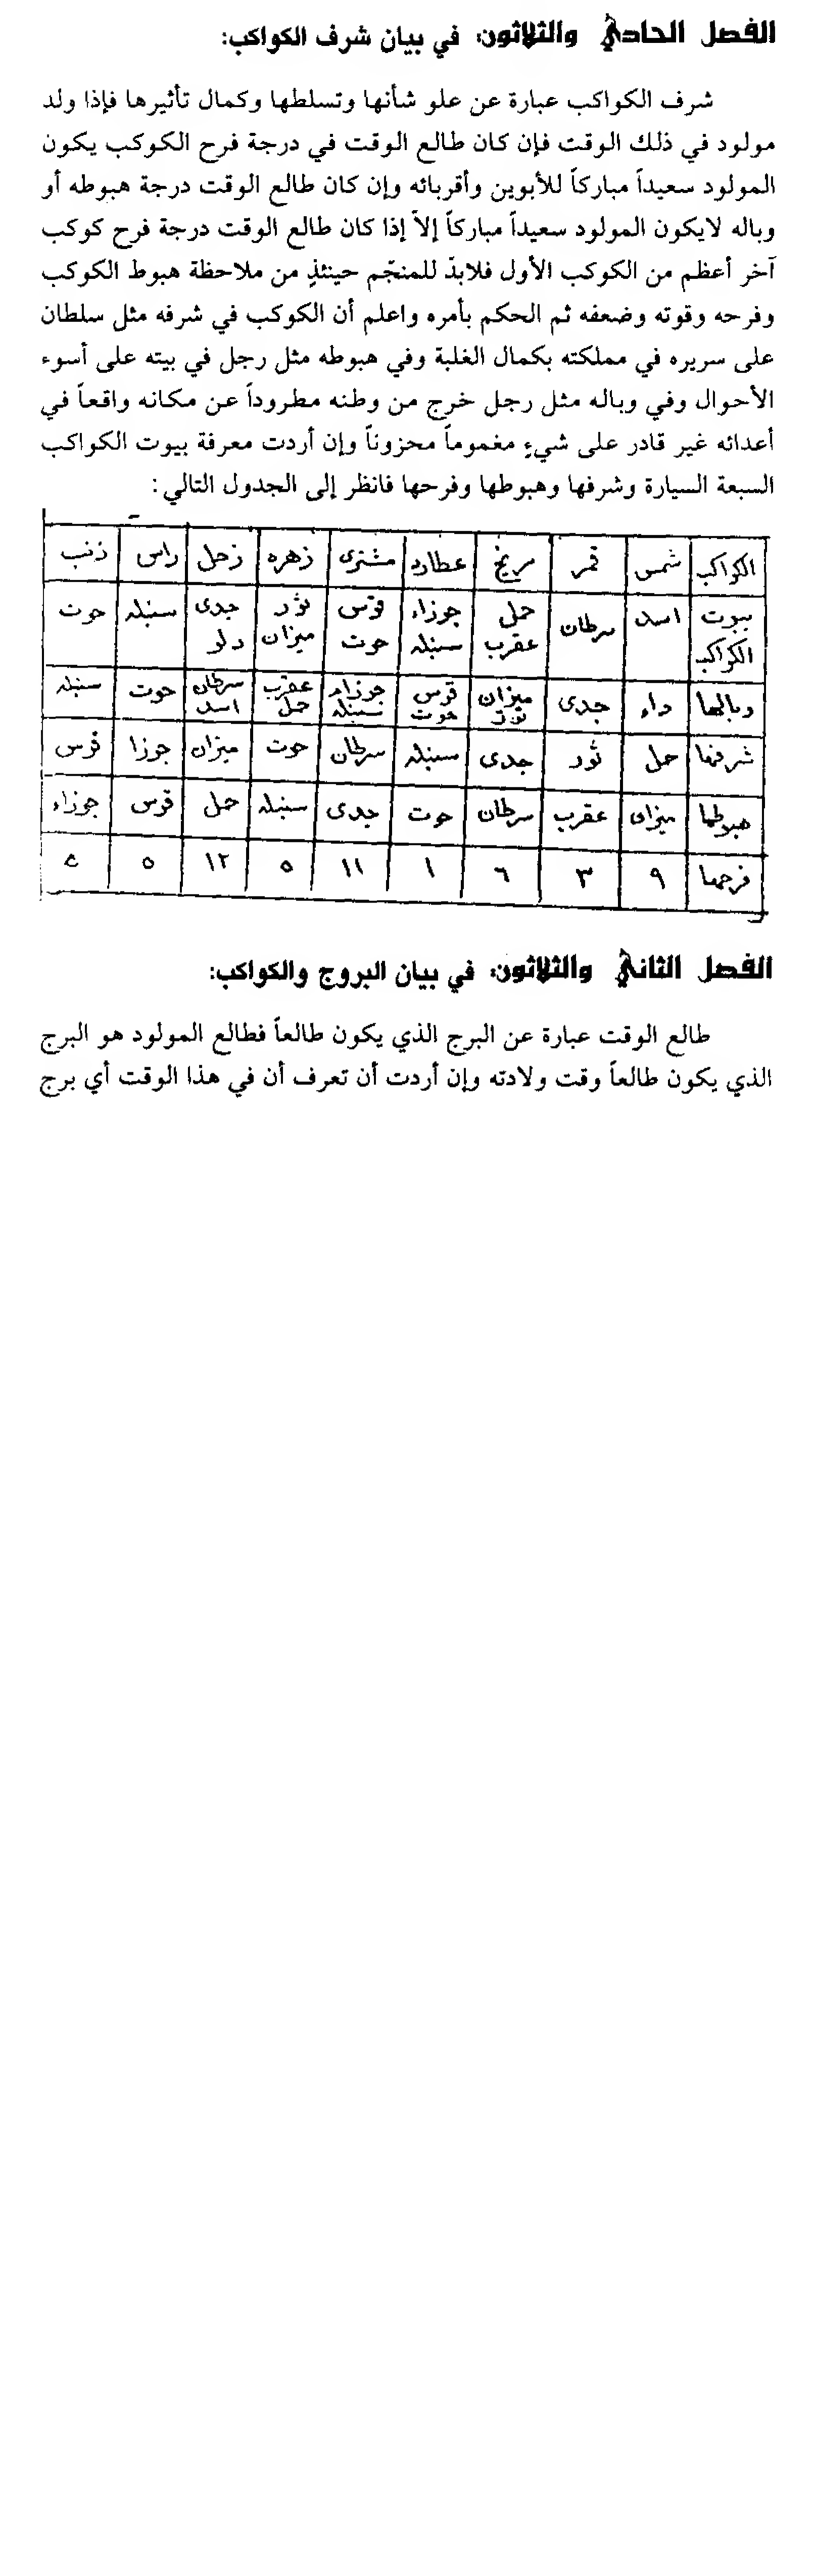 الفصل الحادي والثلاثون: في بيان شرف الكواكب:
شرف الكواكب عبارة عن علو شأنها وتسلطها وكمال تأثيرها فإذا ولد
مولود في ذلك الوقت فإن كان طالع الوقت في درجة فرح الكوكب يكون
المولود سعيداً مباركاً للأبوين وأقربائه وإن كان طالع الوقت درجة هبوطه أو
وباله لايكون المولود سعيداً مباركاً إلاّ إذا كان طالع الوقت درجة فرح كوكب
آخر أعظم من الكوكب الأول فلابدّ للمنجّم حينئذٍ من ملاحظة هبوط الكوكب
وفرحه وقوته وضعفه ثم الحكم بأمره واعلم أن الكوكب في شرفه مثل سلطان
على سريره في مملكته بكمال الغلبة وفي هبوطه مثل رجل في بيته على أسوء
الأحوال وفي وباله مثل رجل خرج من وطنه مطروداً عن مكانه واقعاً في
أعدائه غير قادر على شيءٍ مغموماً محزوناً وإن أردت معرفة بيوت الكواكب
السبعة السيارة وشرفها وهبوطها وفرحها فانظر إلى الجدول التالي:
الكواكب شمس قمر مريخ عطارد مشترى زهره زحل راس ذنب
بيوت الكواكب اسد سرطان حمل عقرب جوزاء سنبله قوس حوت ثور ميزان جدى دلو سنبله حوت
وبالها دلو جدى ميزان ثور قوس حوت جوزاء سنبله عقرب حمل سرطان اسد حوت سنبله
شرفها حمل ثور جدى سنبله سرطان حوت ميزان جوزا قوس
هبوطها ميزان عقرب سرطان حوت جدى سنبله حمل قوس جوزاء
فرحها ٩ ٣ ٦ ١ ١١ ٥ ١٢ ٥ ٥
الفصل الثاني والثلاثون: في بيان البروج والكواكب:
طالع الوقت عبارة عن البرج الذي يكون طالعاً فطالع المولود هو البرج
الذي يكون طالعاً وقت ولادته وإن أردت أن تعرف أن في هذا الوقت أي برج